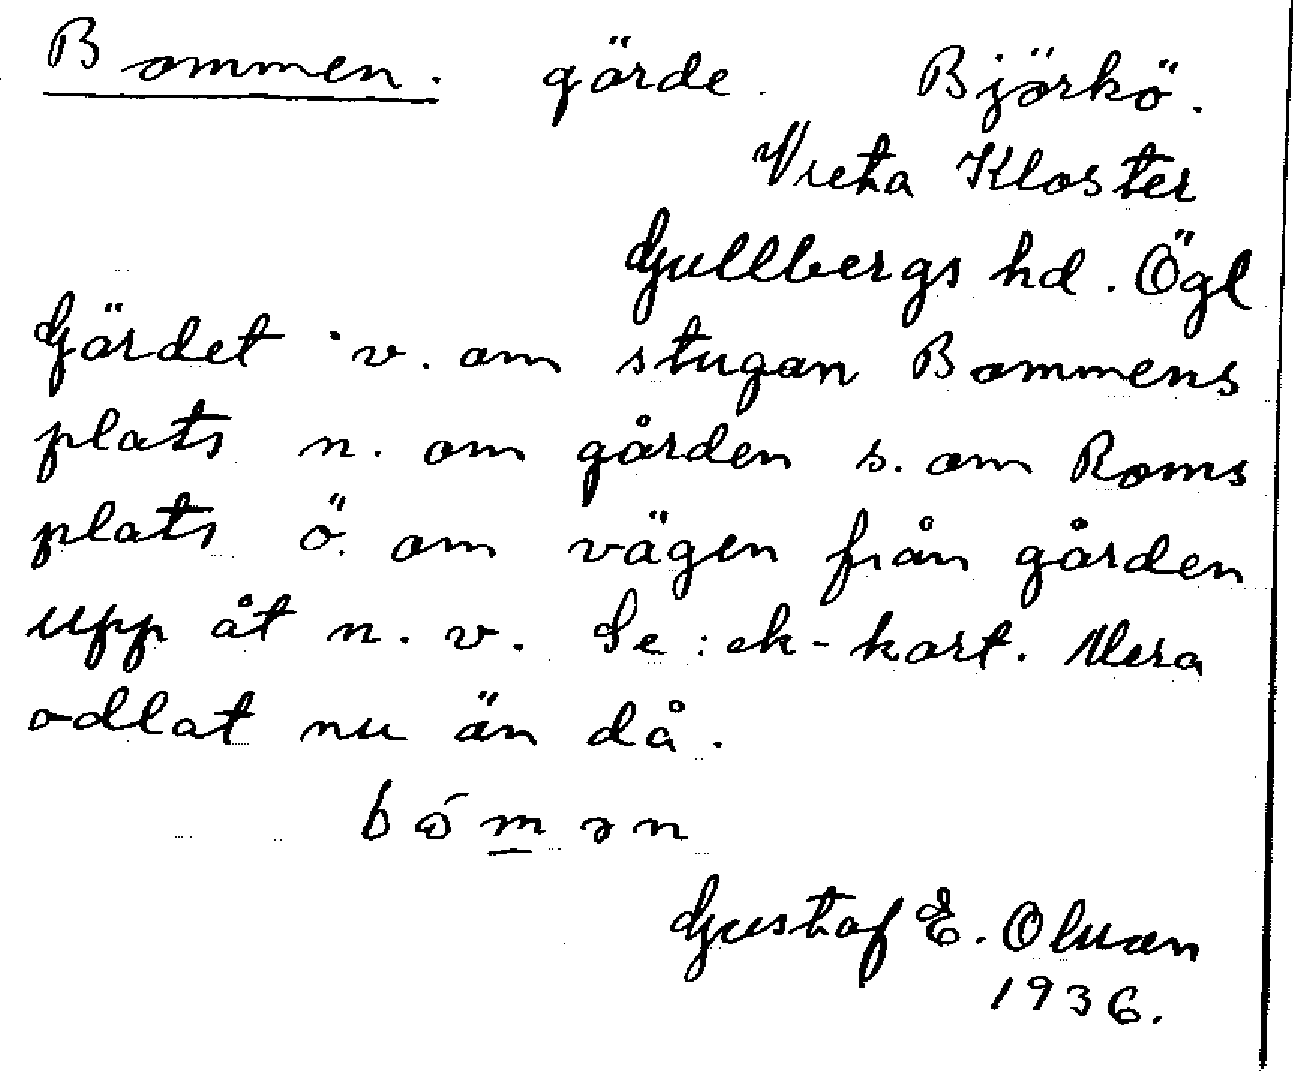 Bommen. görde. Björkö.
Vreta Kloster
Gullbergs hd. Ögl
Gärdet v. om stugan Bommens
plats n. om gården s. om Roms
plats ö. om vägen från gården
upp åt n. v. Se: ek-kart. Mera
odlat nu än då.
Gustaf E. Olsson
1936.